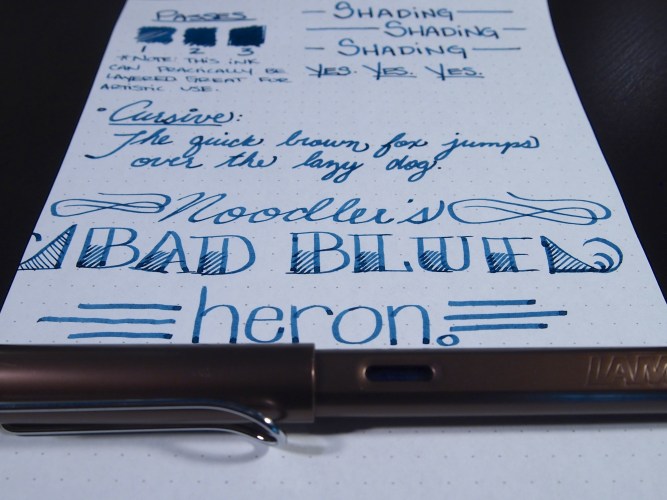 PASSES
1 2 3
*NOTE: THIS INK
CAN PRACICALLY BE
LAYERED. GREAT FOR
ARTISTIC USE.
SHADING
SHADING
SHADING
YES. YES. YES.
• Cursive:
The quick brown fox jumps
over the lazy dog.
Noodler's
BAD BLUE
heron.
LAMY